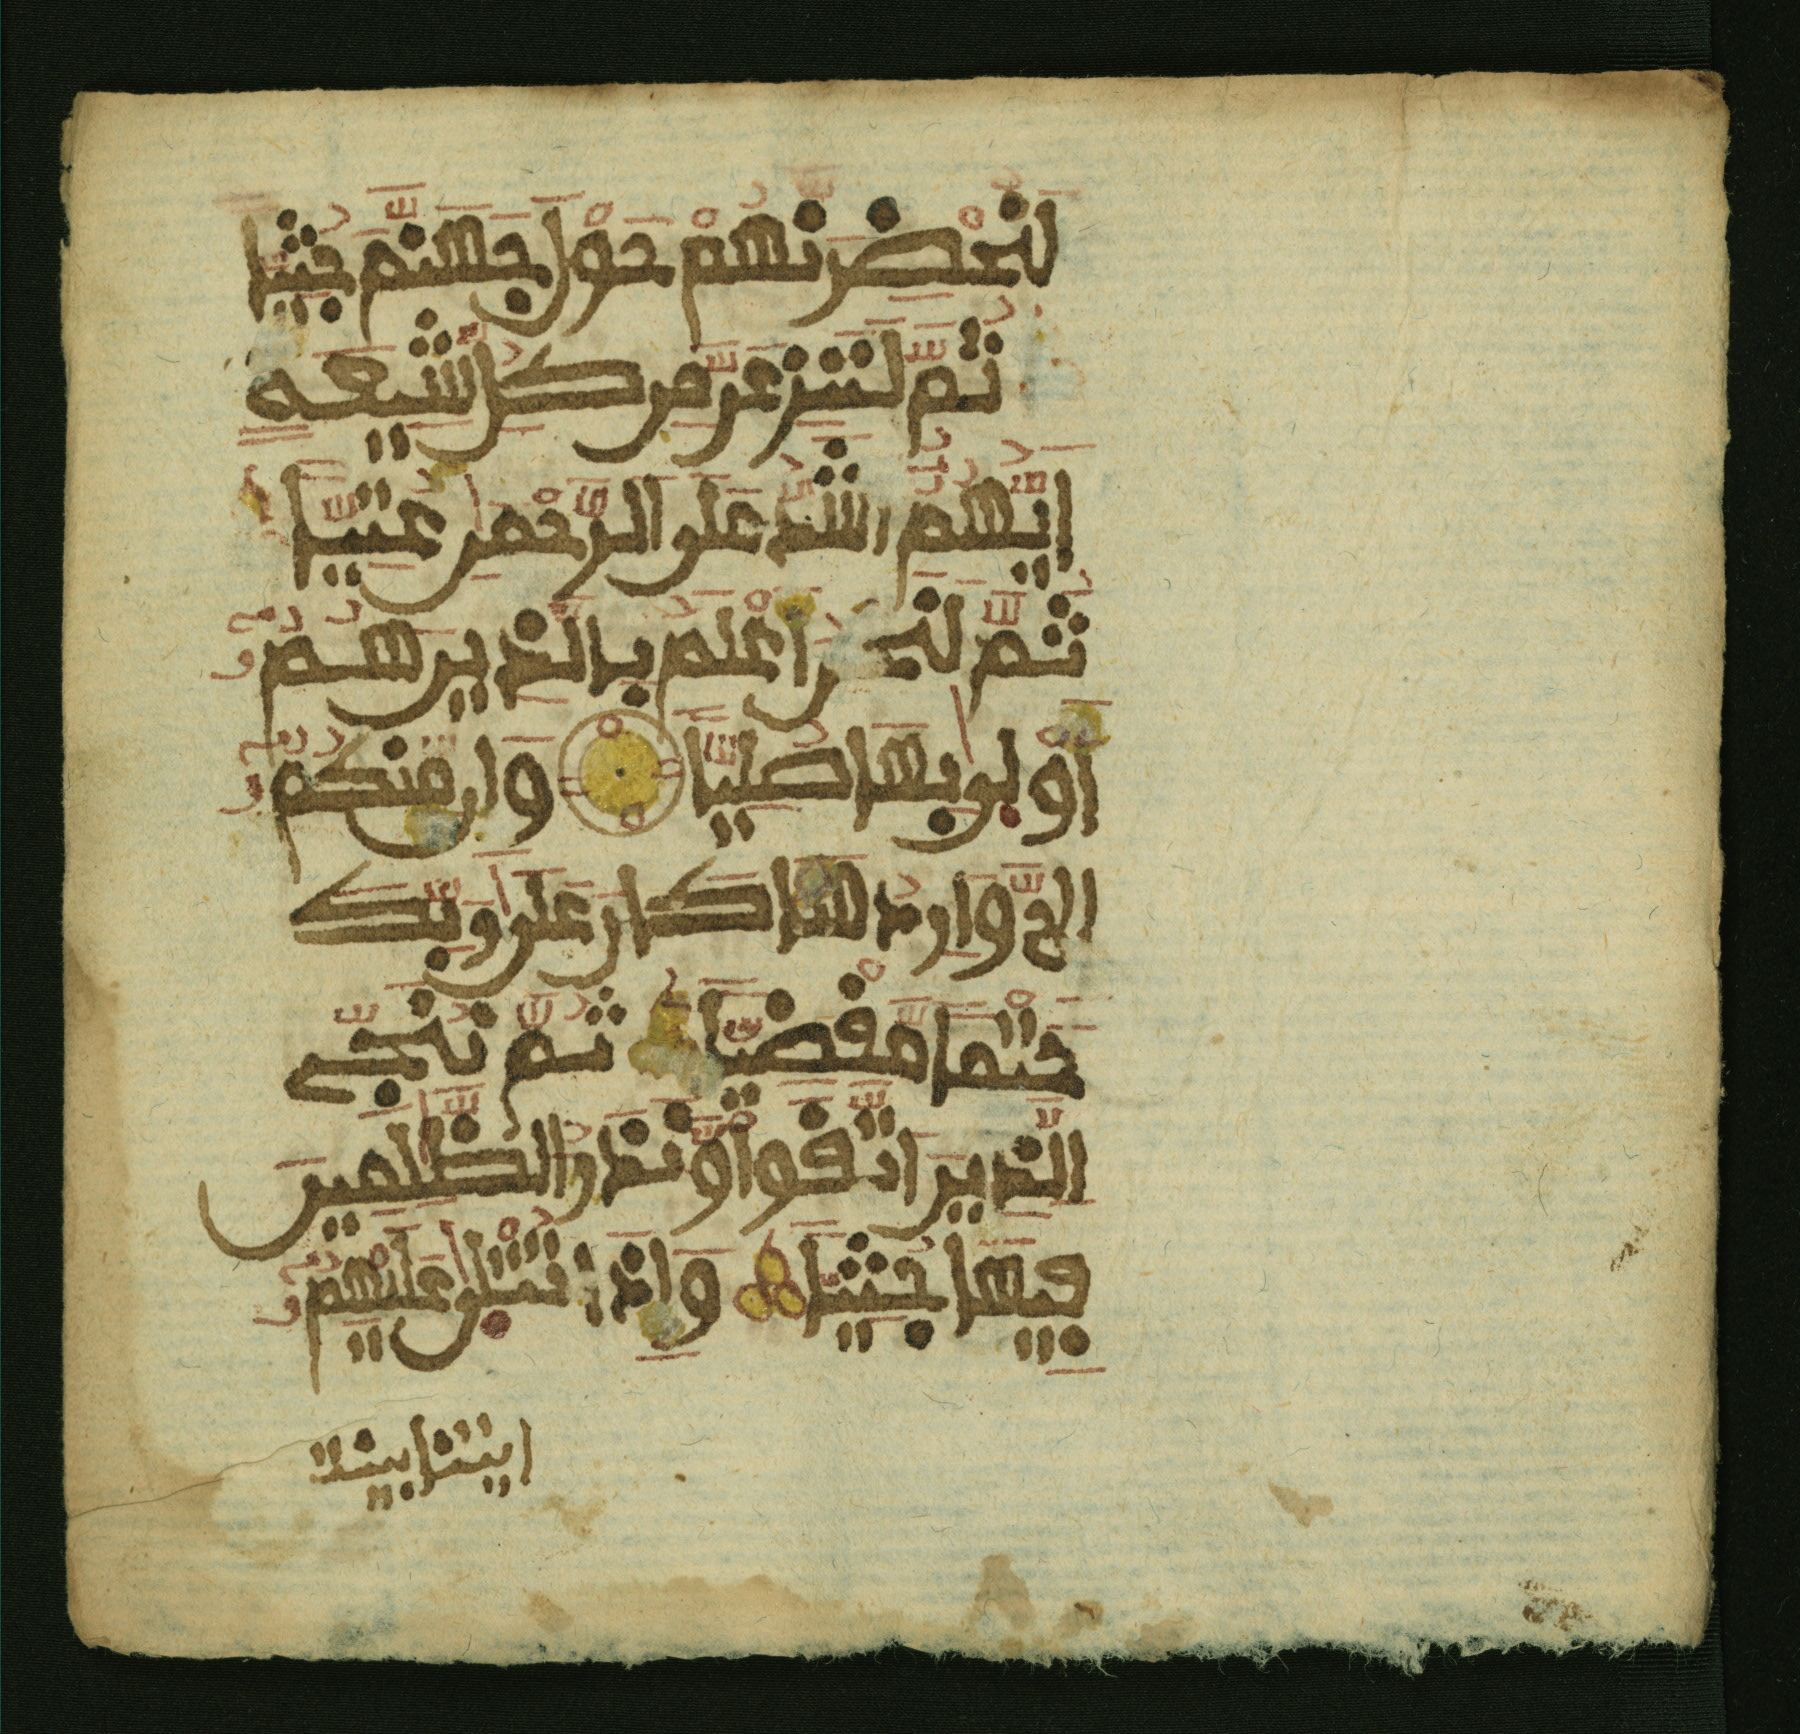 لَنُحْضِرَنَّهُمْ حَوْلَ جَهَنَّمَ جُثِيًّا
ثُمَّ لَنَنزِعَنَّ مِن كُلِّ شِيعَةٍ
أَيُّهُمُ أَشَدُّ عَلَى الرَّحْمَٰنِ عُتِيًّا
ثُمَّ لَنَحْنُ أَعْلَمُ بِالَّذِينَ هُمُ
أَوْلَىٰ بِهَا صُلِيًّا وَإِن مِّنكُمُ
إِلَّا وَارِدُهَا كَانَ عَلَىٰ رَبِّكَ
حَتْمًا مَّقْضِيًّا ثُمَّ نُنَجِّي
الَّذِينَ اتَّقَوا وَّنَذَرُ الظَّٰلِمِينَ
فِيهَا جُثِيًّا وَإِذَا تُتْلَىٰ عَلَيْهِمُ
ايتنا بينت